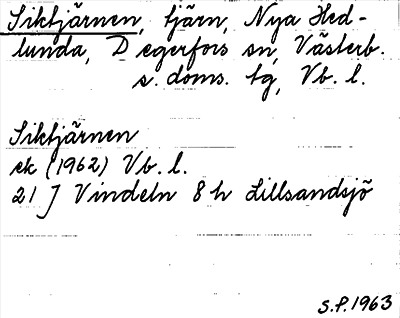 Siktjärnen, tjärn, Nya Hed-
lunda, Degerfors sn, Västerb.
s. doms. tg, Vb. l.
Siktjärnen
ek (1962) Vb. l.
21 J Vindeln 8 h Lillsandsjö
S.P. 1963